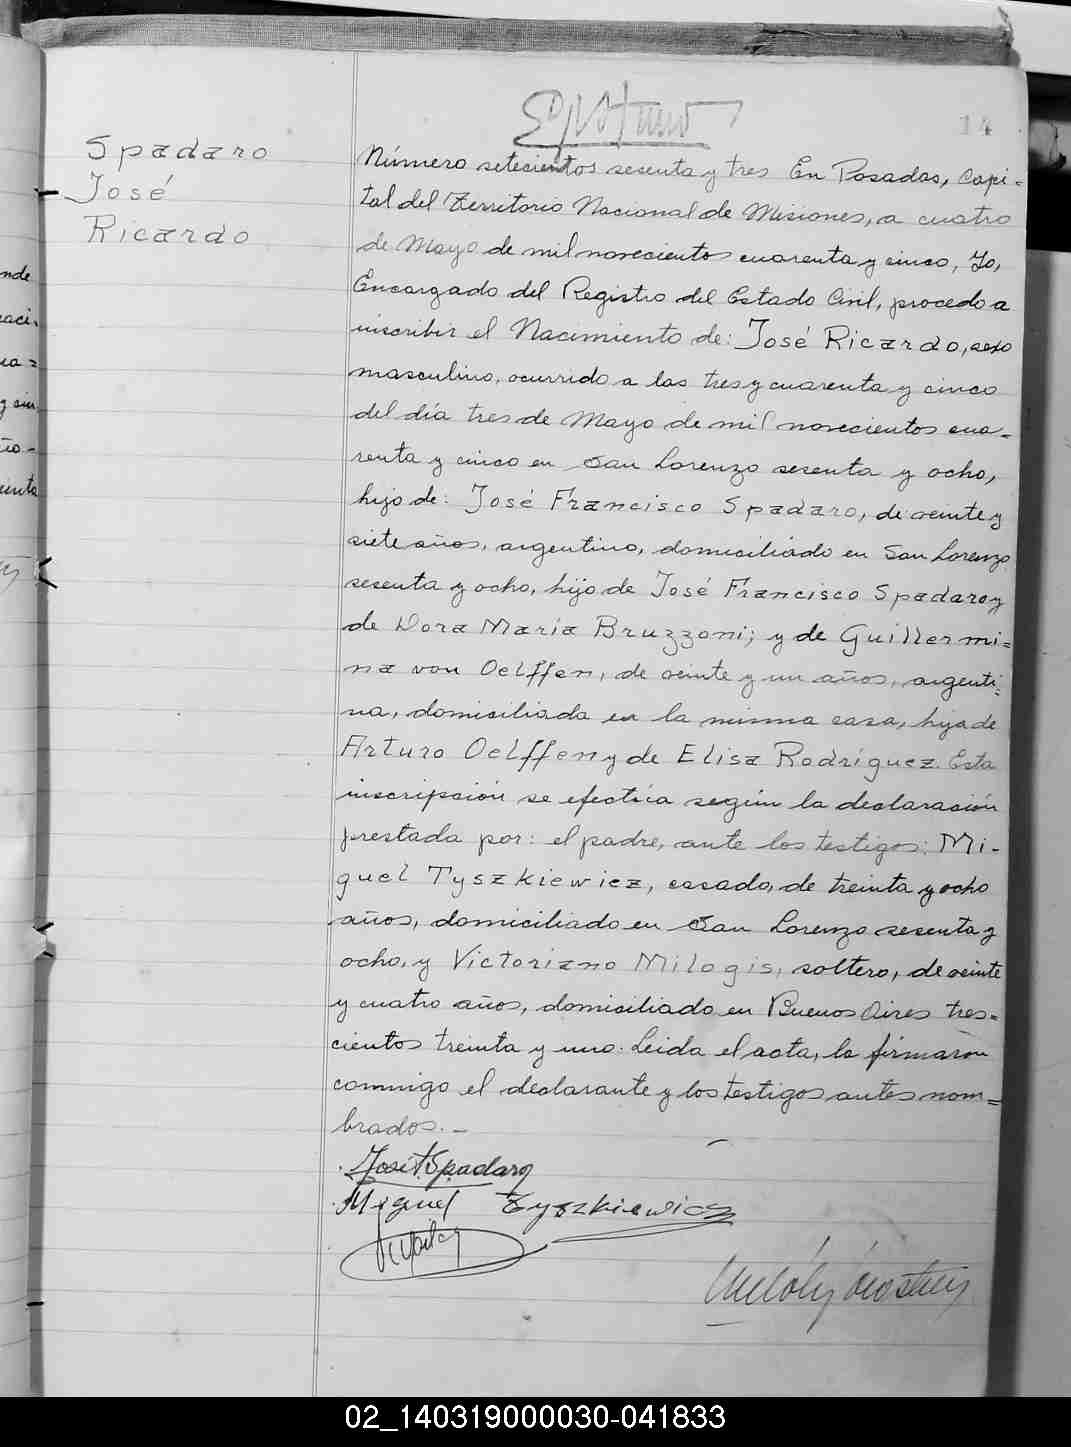 14
Spadaro
José
Ricardo
Número setecientos sesenta y tres En Posadas, Capi=
tal del Territorio Nacional de Misiones, a cuatro
de Mayo de mil novecientos cuarenta y cinco, Yo,
Encargado del Registro del Estado Civil, procedo a
inscribir el Nacimiento de: José Ricardo, sexo
masculino, ocurrido a las tres y cuarenta y cinco
del día tres de Mayo de mil novecientos cua=
renta y cinco en San Lorenzo sesenta y ocho,
hijo de: José Francisco Spadaro, de veinte y
siete años, argentino, domiciliado en San Lorenzo
sesenta y ocho, hijo de José Francisco Spadaro y
de Dora María Bruzzoni; y de Guillermi=
na von Oelffen, de veinte y un años, argenti=
na, domiciliada en la misma casa, hija de
Arturo Oelffen y de Elisa Rodríguez. Esta
inscripción se efectúa según la declaración
prestada por: el padre, ante los testigos: Mi-
guel Tyszkiewicz, casado, de treinta y ocho
años, domiciliado en San Lorenzo sesenta y
ocho, y Victoriano Milogis, soltero, de veinte
y cuatro años, domiciliado en Buenos Aires tres=
cientos treinta y uno. Leida el acta, la firmaron
conmigo el declarante y los testigos antes nom=
brados. _
José F. Spadaro
Miguel Tyszkiewicz
02_140319000030-041833